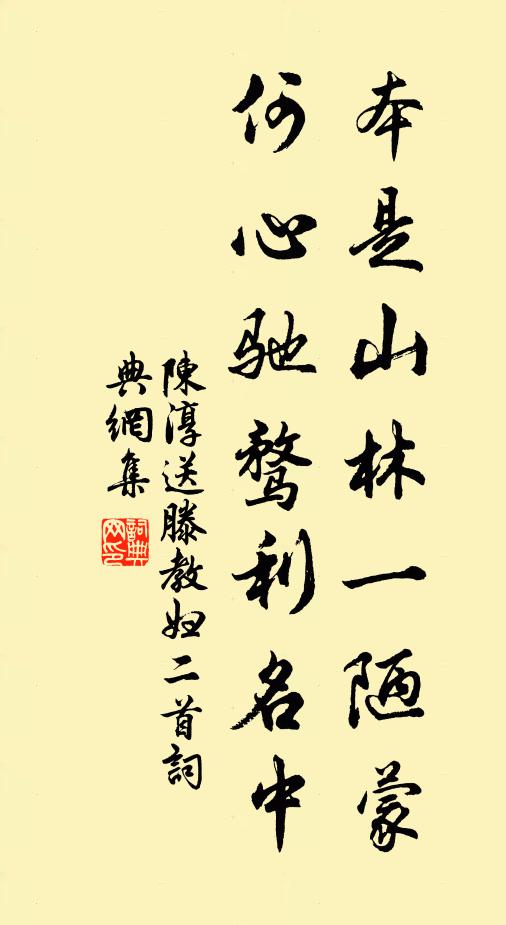 本是山林一陋蒙
何心驰骛利名中
陳淳送滕教妞二首詞
典網集
詞典网印